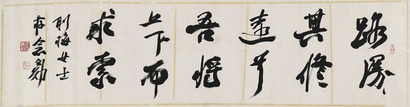 路漫
其修
遠兮
吾將
上下而
求索
女士